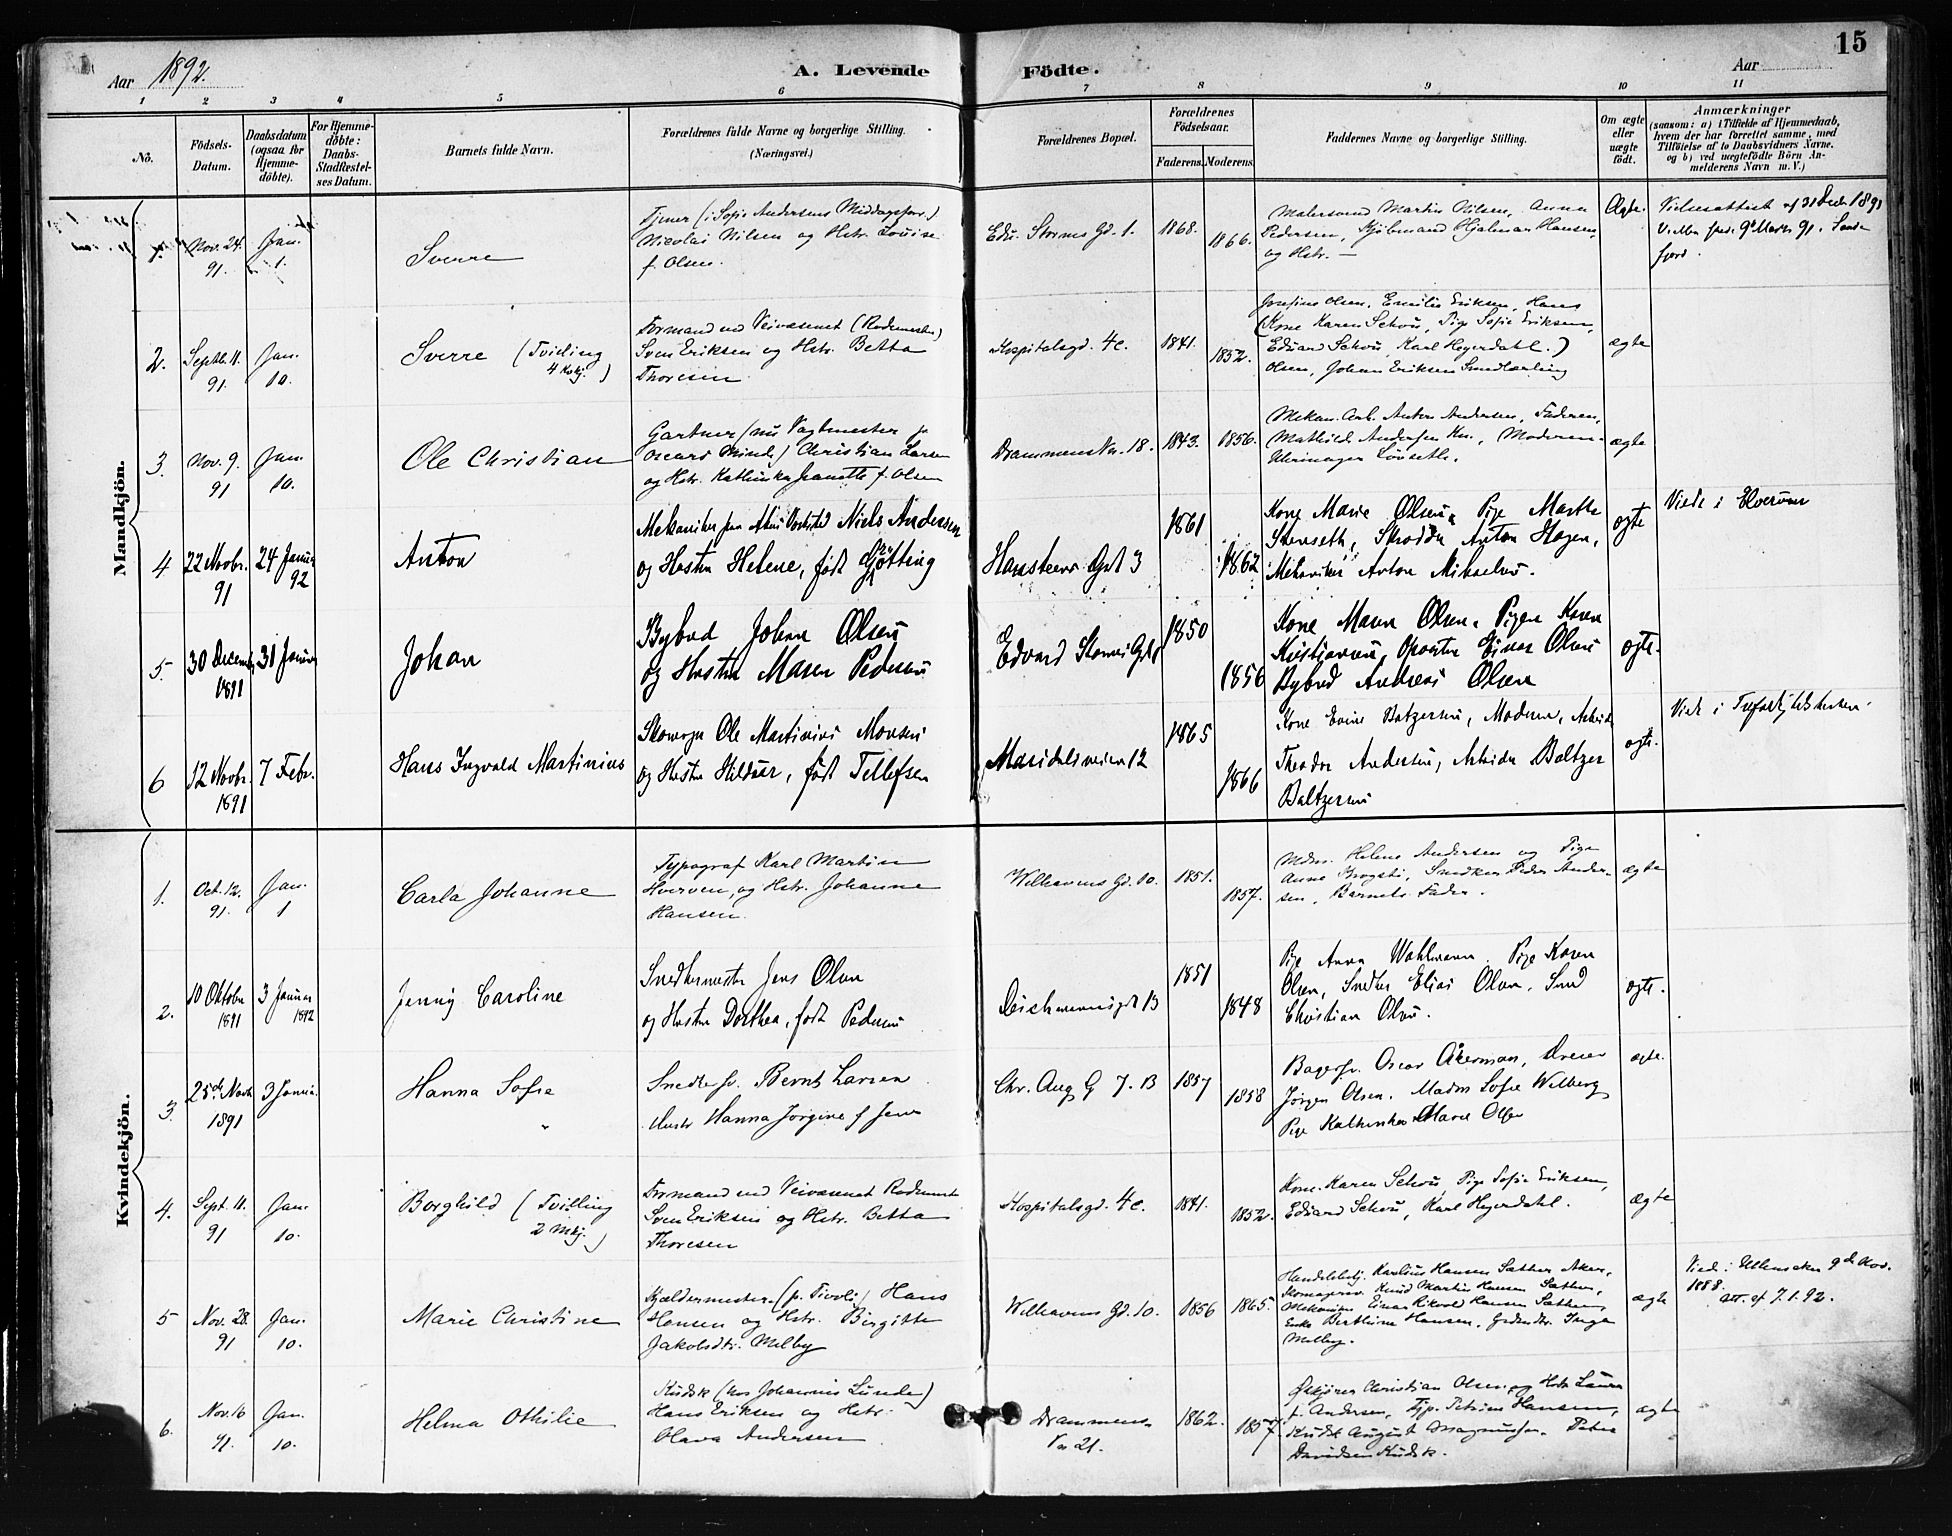 15
Aar 1892.
A. Levende Födte.
Aar
1 2 3 4 5 6 7 8 9 10 11
No.
Födsels-Datum.
Daabsdatum (ogsaa for Hjemme-döbte).
For Hjemme-döbte: Daabs-Stadfæstel-ses Datum.
Barnets fulde Navn.
Forældrenes fulde Navne og borgerlige Stilling. (Næringsvei.)
Forældrenes Bopæl.
Forældrenes Födselsaar.
Faderens. Moderens.
Faddernes Navne og borgerlige Stilling.
Om ægte eller uægte födt.
Anmærkninger
(saasom: a) i Tilfælde af Hjemmedaab, hvem der har forrettet samme, med Tilföielse af to Daabsvidners Navne. og b) ved uægtefödte Börn Anmelderens Navn m. V.)
Mandkjön.
1. Nov. 24. 91. Jan. 1. Sverre
Tjener (i Sofie Andersens Middagsforr.)
Nicolai Nilsen og Hstr. Louise
f. Olsen.
Edv. Storms Gd. 1. 1868. 1866.
Malersvend Martin Nilsen, Anna
Pedersen, Kjöbmand Hjalmar Hansen,
og Hstr. —
Ægte.
Vielsesattest af 31 Decb. 1891
9de Marts 91. Sande-
fjord.
2. Septb. 11. 91. Jan. 10. Sverre (Tvilling 4 Kvkj.)
Formand ved Veivæsenet (Rodemester)
Sven Eriksen og Hstr. Betta
Thoresen
Hospitalsgd. 4c. 1841. 1852.
Josefine Olsen, Emilie Eriksen, Hans
(Kone Karen Schou, Pige Sofie Eriksen,
Edvard Schou, Karl Heyerdahl.)
Olsen, Johan Eriksen Smedlærling
ægte
3. Nov. 9. 91 Jan. 10. Ole Christian
Gartner (nu Vagtmester p.
Oscars Minde) Christian Larsen
og Hstr. Kathinka Jeanette f. Olsen
Drammensvn. 18. 1843. 1856.
Mekan. Arb. Anton Andersen, Faderen,
Mathilde Andersen Kn., Moderen.
Uhrmager Lövseth.
ægte
4 22 Novbr. 91 24 Januar 92 Anton
Mekaniker paa Akers Værksted Niels Andersen
og Hustru Helene, født Gjötting
Hansteens Gade 3 1861 1862
Kone Marie Olsen, Pige Marthe
Stenseth, Skrædder Anton Hagen,
Mekaniker Anton Mikaelsen.
ægte
Viede i Elverum
5. 30 December 1891 31 Januar Johan
Bybud Johan Olsen
og Hustru Maren Pedersen
Edvard Storms Gd 1850 1856
Kone Maren Olsen, Pigen Karen
Kristiansen, Einar Olsen
Bybud Andreas Olsen
ægte.
6 12 Novbr. 1891 7 Febr. Hans Ingvald Martinius
Skomager Ole Martinius Monsen
og Hustru Hilduer, født Tellefsen
Maridalsveien 12 1865 1866
Kone Evine Batzersen, Moderen, Arbeider
Theodor Andersen, Arbeider Baltzer
Baltzersen
ægte.
Viede i Trefoldighedskirken.
Kvindekjön.
1. Oct. 12. 91. Jan. 1 Carla Johanne
Typograf Karl Martin
Hverven, og Hstr. Johanne
Hansen.
Welhavens Gd. 10. 1851. 1857.
Mdm. Helene Andersen og Pige
Anne Brogsti, Snedker Peder Ander-
sen, Barnets Fader.
ægte
2. 10 Oktober 1891 3 Januar 1892 Jenny Caroline
Snedkermester Jens Olsen
og Hustru Dorthea, født Pedersen
Deichmannsgd. 13 1851 1848
Pige Anna Wahlmann, Pige Karen
Olsen, Snedker Elias Olsen, Sned
Christian Olsen.
ægte.
3. 25de Novbr. 1891 3 Januar Hanna Sofie
Snedkersv. Bernt Larsen
Hustr Hanna Jorgine f. Jens
Chr. Aug. G 7. B 1857 1858
Bagersv. Oscar Åkerman, Dreier
Jørgen Olsen. Madm Sofie Welberg
Pige Kathinka Marie Olsen
ægte.
4. Sept. 11. 91 Jan. 10. Borghild (Tvilling 2 Mkj.)
Formand ved Veivæsenet Rodemest
Sven Eriksen og Hstr. Betta
Thoresen
Hospitalsgd. 4c. 1841. 1852.
Kone Karen Schou, Pige Sofie Eriksen,
Edvard Schou, Karl Heyerdahl.
ægte
5 Nov. 28. 91 Jan. 10. Marie Christine
Kjældermester (p. Tivoli) Hans
Hansen og Hstr. Birgitte
Jakobsdtr. Melby
Welhavens Gd. 10. 1856 1865.
Handelsbetj. Karlius Hansen Sæther Aker,
Skomagersv. Knud Martin Hansen Sæther,
Mekaniker Einar Rikvold Hansen Sæther,
Enke Berthine Hansen, Grdmdtr. Inga
Melby.
ægte
Viede i Ullensaker 9de Nov.
1888.
Att. af 7.1.92.
6. Nov. 16 91. Jan. 10. Helma Othilie
Kudsk (hos Johannes Lunde)
Hans Eriksen og Hstr.
Olava Andersen
Drammens-
Vn 21. 1862. 1857.
Christian Olsen og Hstr Laura
f. Andersen, Tjp. Petrine Hansen,
Kudsk August Magnussen, Peter
Davidsen Kudsk.
ægte